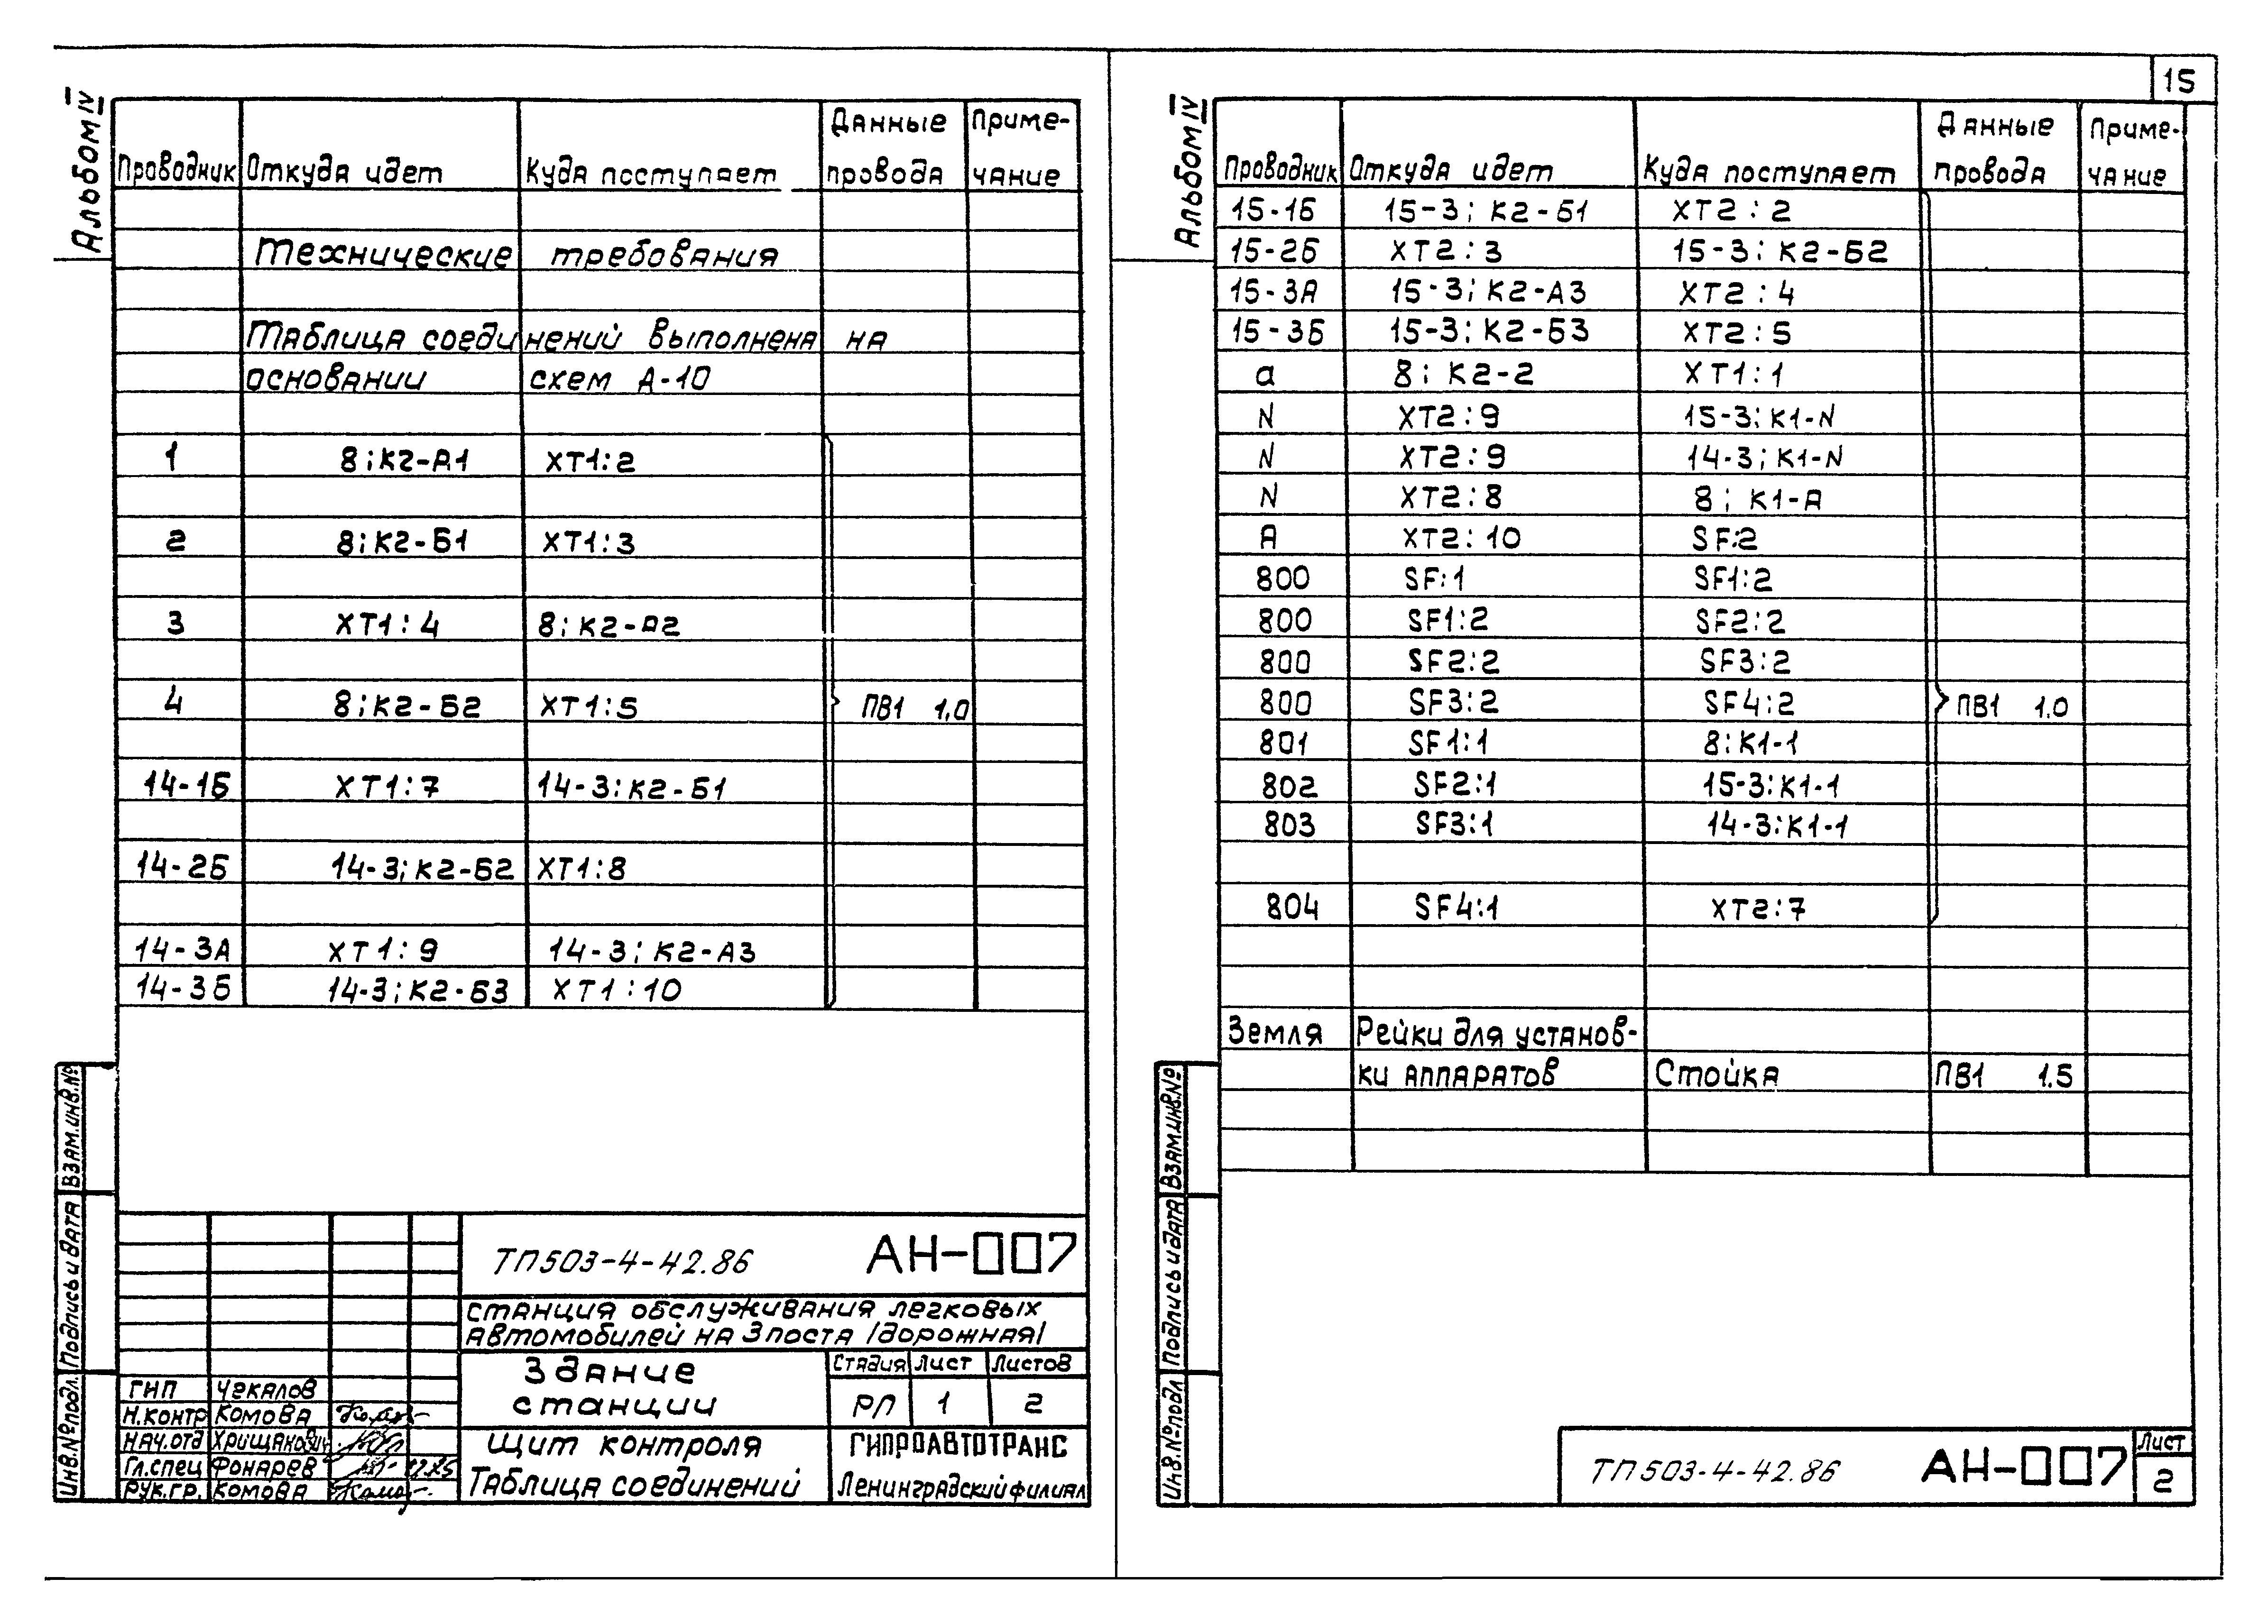 Альбом IV
Проводник Откуда идет Куда поступает Данные провода Приме-чание
Технические требования
Таблица соединений выполнена на
основании схем А-10
1 8;К2-А1 ХТ1:2
2 8;К2-Б1 ХТ1:3
3 ХТ1:4 8;К2-А2
4 8;К2-Б2 ХТ1:5 ПВ1 1,0
14-1Б ХТ1:7 14-3:К2-Б1
14-2Б 14-3;К2-Б2 ХТ1:8
14-3А ХТ1:9 14-3;К2-А3
14-3Б 14-3;К2-Б3 ХТ1:10
Взам.инв.№
Подпись и дата
Инв.№подл.
ТП503-4-42.86 АН-007
станция обслуживания легковых
автомобилей на 3 поста /дорожная/
Здание
станции
Стадия Лист Листов
РП 1 2
ГИП Чекалов
Н.контр Комова
Нач.отд Хрищанович
Гл.спец Фонарев
Рук.гр. Комова
Щит контроля
Таблица соединений
ГИПРОАВТОТРАНС
Ленинградский филиал
15
Альбом IV
Проводник Откуда идет Куда поступает Данные провода Приме-чание
15-1Б 15-3;К2-Б1 ХТ2:2
15-2Б ХТ2:3 15-3;К2-Б2
15-3А 15-3;К2-А3 ХТ2:4
15-3Б 15-3;К2-Б3 ХТ2:5
а 8;К2-2 ХТ1:1
N ХТ2:9 15-3;К1-N
N ХТ2:9 14-3;К1-N
N ХТ2:8 8;К1-А
А ХТ2:10 SF:2
800 SF:1 SF1:2
800 SF1:2 SF2:2
800 SF2:2 SF3:2
800 SF3:2 SF4:2 ПВ1 1,0
801 SF1:1 8:К1-1
802 SF2:1 15-3:К1-1
803 SF3:1 14-3:К1-1
804 SF4:1 ХТ2:7
Земля Рейки для установ-
ки аппаратов Стойка ПВ1 1.5
Взам.инв.№
Подпись и дата
Инв.№подл
ТП503-4-42.86 АН-007
Лист
2